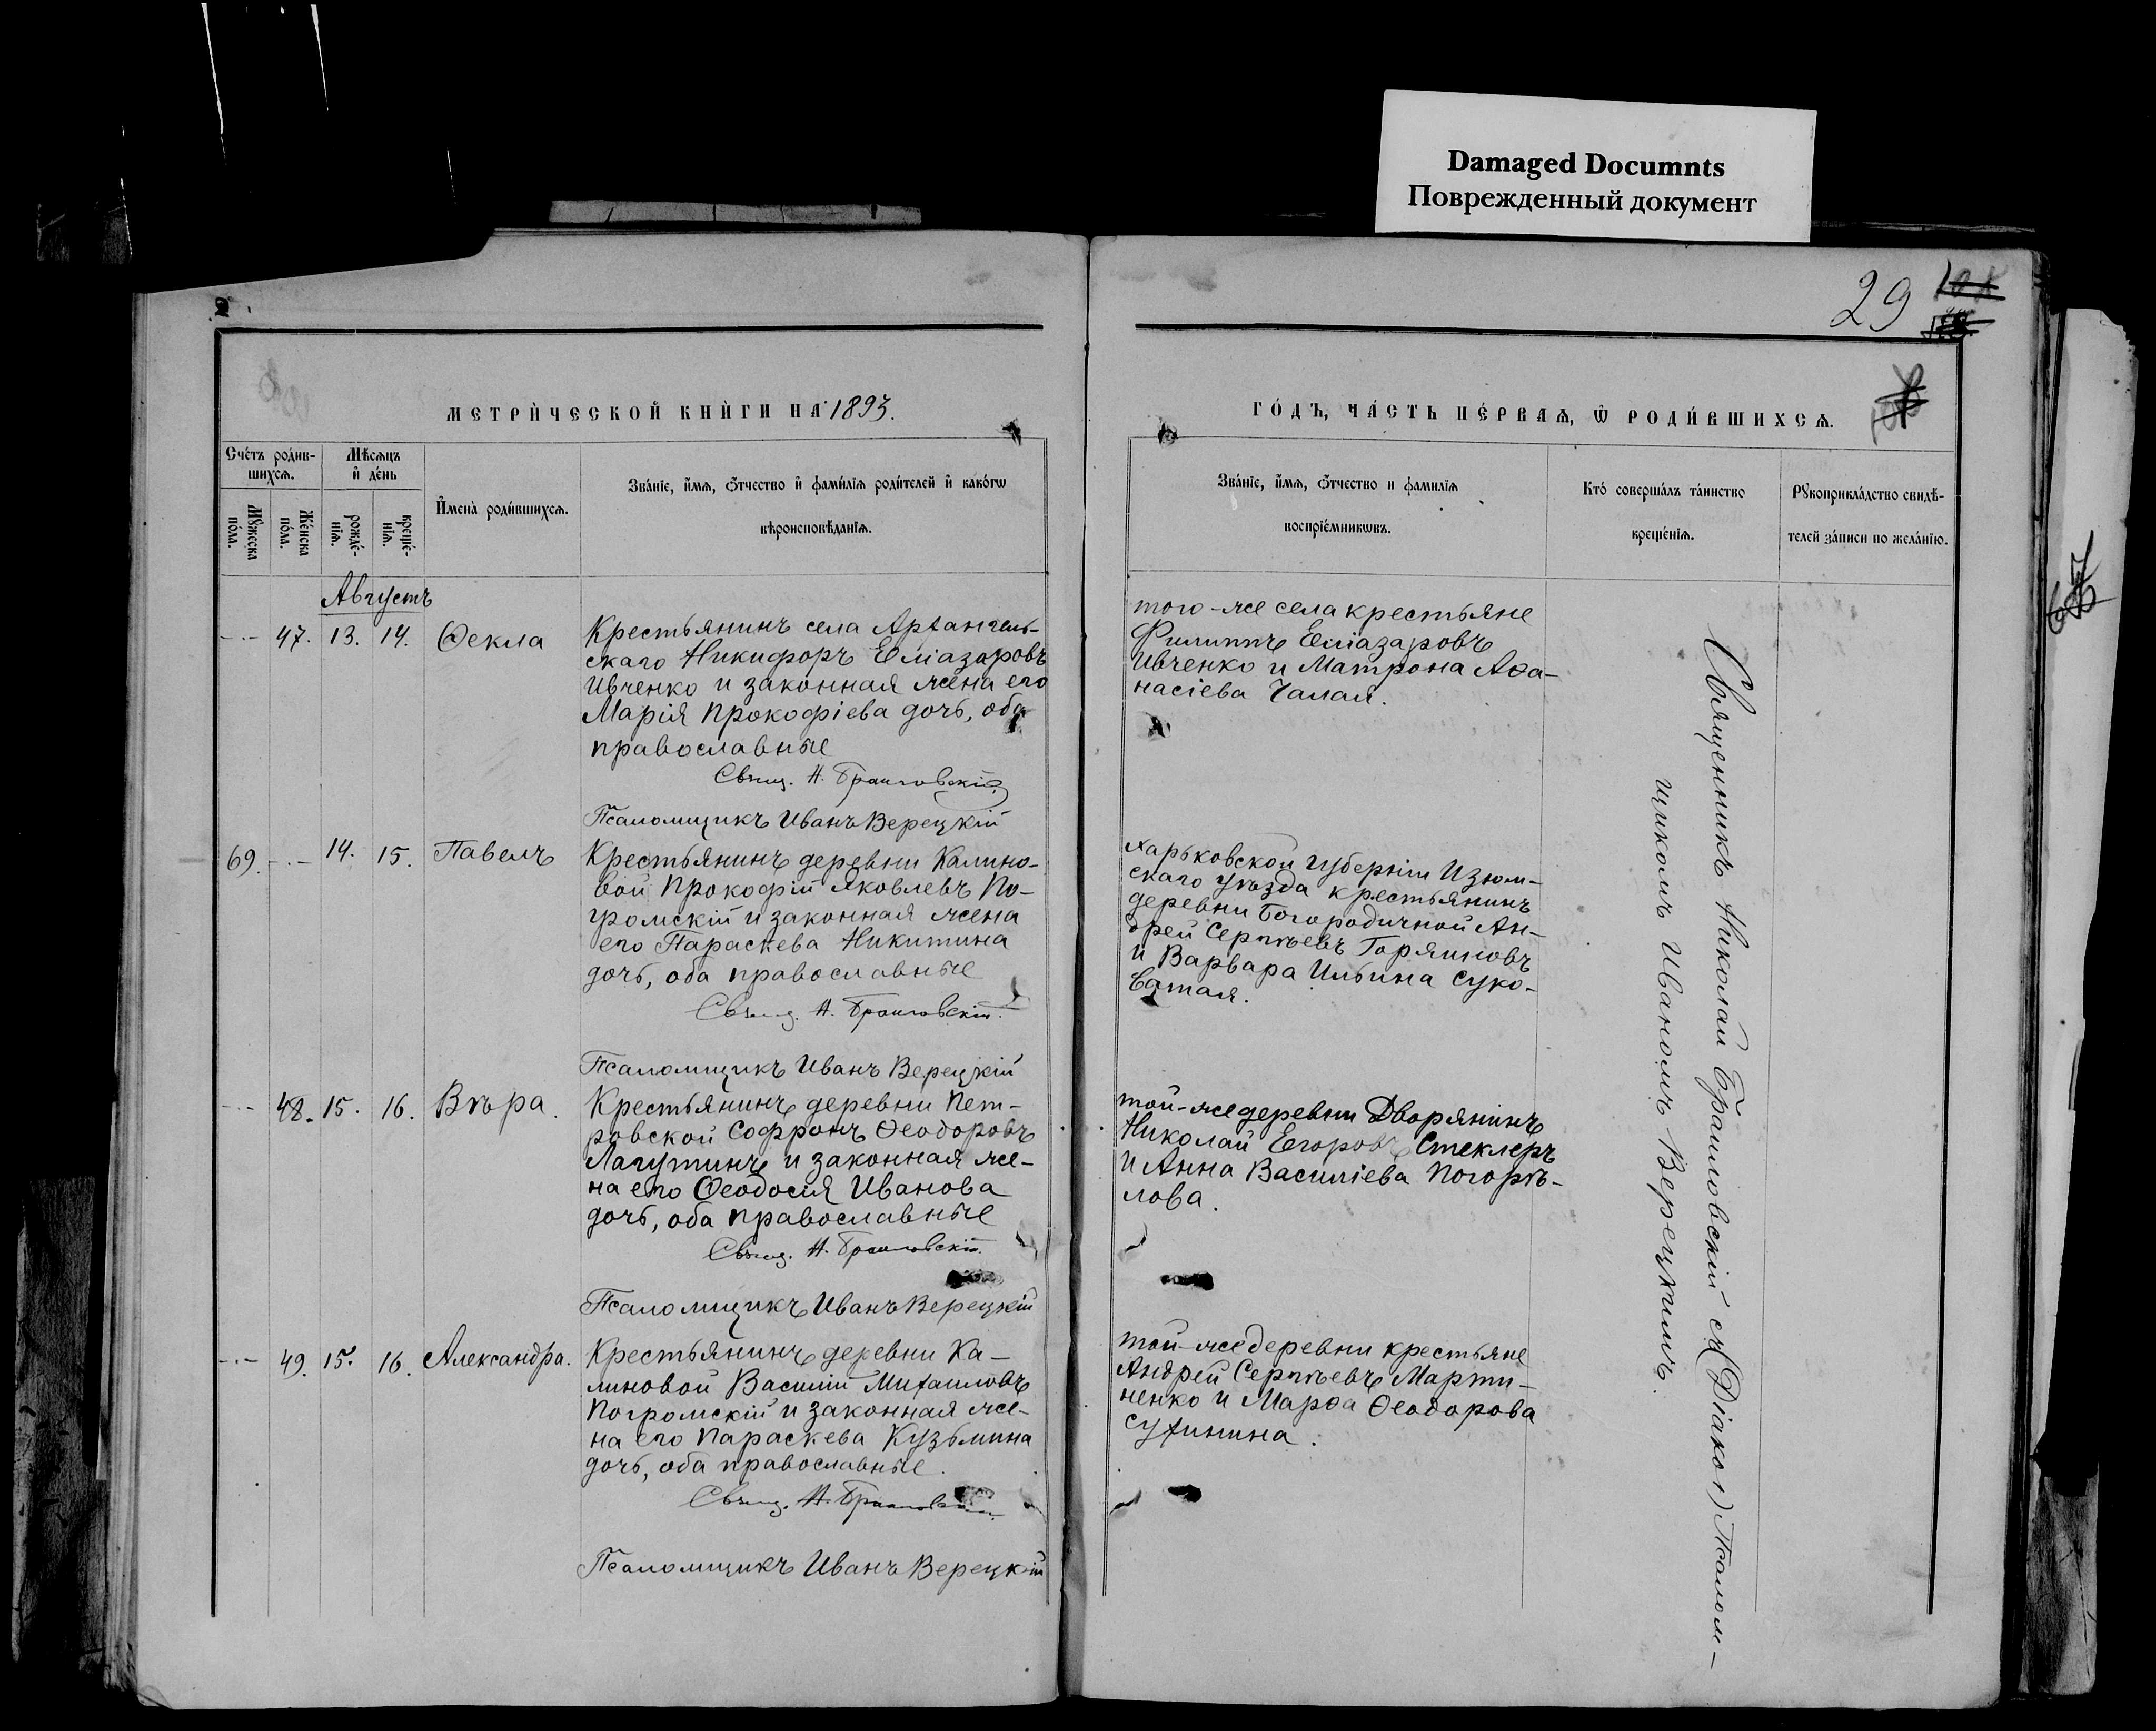 Damaged Documnts
Поврежденный документ
29
МЕТРИ́ЧЕСКОЙ КНИ́ГИ НА 1893.
ГО́ДЪ, ЧА́СТЬ ПЕ́РВАѦ, Ѡ҆ РОДИ́ВШИХСѦ.
Сче́тъ роди́в-
шихсѧ.
Мꙋ́жеска
по́ла.
Же́нска
по́ла.
Мѣ́сѧцъ
и҆ де́нь
рожде́-
нїѧ.
креще́-
нїѧ.
И҆мена̀ роди́вшихсѧ.
Зва́нїе, и҆́мѧ, ѻ҆́тчество и҆ фами́лїѧ роди́телей и҆ како́гѡ
вѣроисповѣ́данїѧ.
Зва́нїе, и҆́мѧ, ѻ҆́тчество и фамилїѧ
воспрїе́мникѡвъ.
Кто́ соверша́лъ та́инство
креще́нїѧ.
Рꙋкоприкла́дство свидѣ́-
телей за́писи по жела́нїю.
Августъ
47. 13. 14. Ѳекла
Крестьянинъ села Архангель-
скаго Никифоръ Еліазаровъ
Ивченко и законная жена его
Марія Прокофіева дочь, оба
православные
Свящ. Н. Браиловскій
Псаломщикъ Иванъ Верецкій
того-же села крестьяне
Филиппъ Еліазаровъ
Ивченко и Матрона Аѳа-
насіева Чалая.
69. 14. 15. Павелъ
Крестьянинъ деревни Калино-
вой Прокофій Яковлевъ По-
громскій и законная жена
его Параскева Никитина
дочь, оба православные
Свящ. Н. Браиловскій.
Псаломщикъ Иванъ Верецкій
Харьковской губерніи Изюм-
скаго уѣзда крестьянинъ
деревни Богородичной Ан-
дрей Сергѣевъ Горяиновъ
и Варвара Ильина Суко-
ватая.
48. 15. 16. Вѣра.
Крестьянинъ деревни Пет-
ровской Софронъ Ѳеодоровъ
Лагутинъ и законная же-
на его Ѳеодосія Иванова
дочь, оба православные
Свящ. Н. Браиловскій.
Псаломщикъ Иванъ Верецкій
той-же деревни Дворянинъ
Николай Егоровъ Стеклеръ
и Анна Василіева Погорѣ-
лова.
49. 15. 16. Александра.
Крестьянинъ деревни Ка-
линовой Василій Михаиловъ
Погромскій и законная же-
на его Параскева Кузьмина
дочь, оба православные.
Свящ. Н. Браиловскій.
Псаломщикъ Иванъ Верецкій
той-же деревни крестьяне
Андрей Сергѣевъ Марти-
ненко и Марѳа Ѳеодорова
Сухинина.
Священникъ Николай Браиловскій съ (Діакон) Псалом-
щикомъ Иваномъ Верецкимъ.